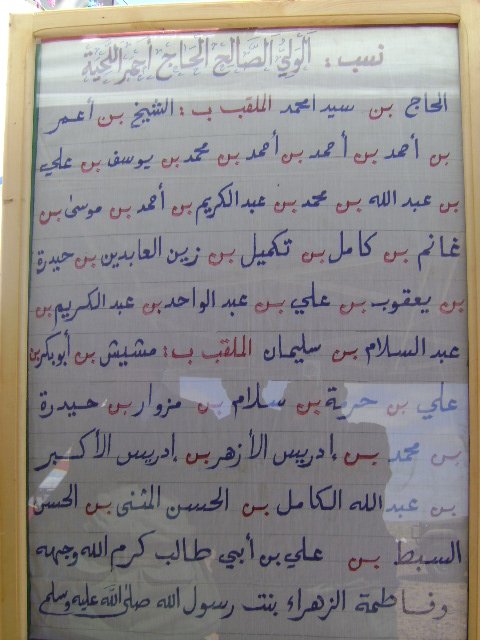 نسب : الولي الصالح الحاج أحمر اللحية
الحاج بن سيد امحمد الملقب ب : الشيخ بن أعمر
بن أحمد بن أحمد بن أحمد بن محمد بن يوسف بن علي
بن عبد الله بن محمد بن عبد الكريم بن أحمد بن موسى بن
غانم بن كامل بن تكميل بن زين العابدين بن حيدرة
بن يعقوب بن علي بن عبد الواحد بن عبد الكريم بن
عبد السلام بن سليمان الملقب ب : مشيش بن أبو بكر بن
علي بن حرية بن سلام بن مزوار بن حيدرة
بن محمد بن إدريس الأزهر بن إدريس الأكبر
بن عبد الله الكامل بن الحسن المثنى بن الحسن
السبط بن علي بن أبي طالب كرم الله وجهه
وفاطمة الزهراء بنت رسول الله صلى الله عليه وسلم